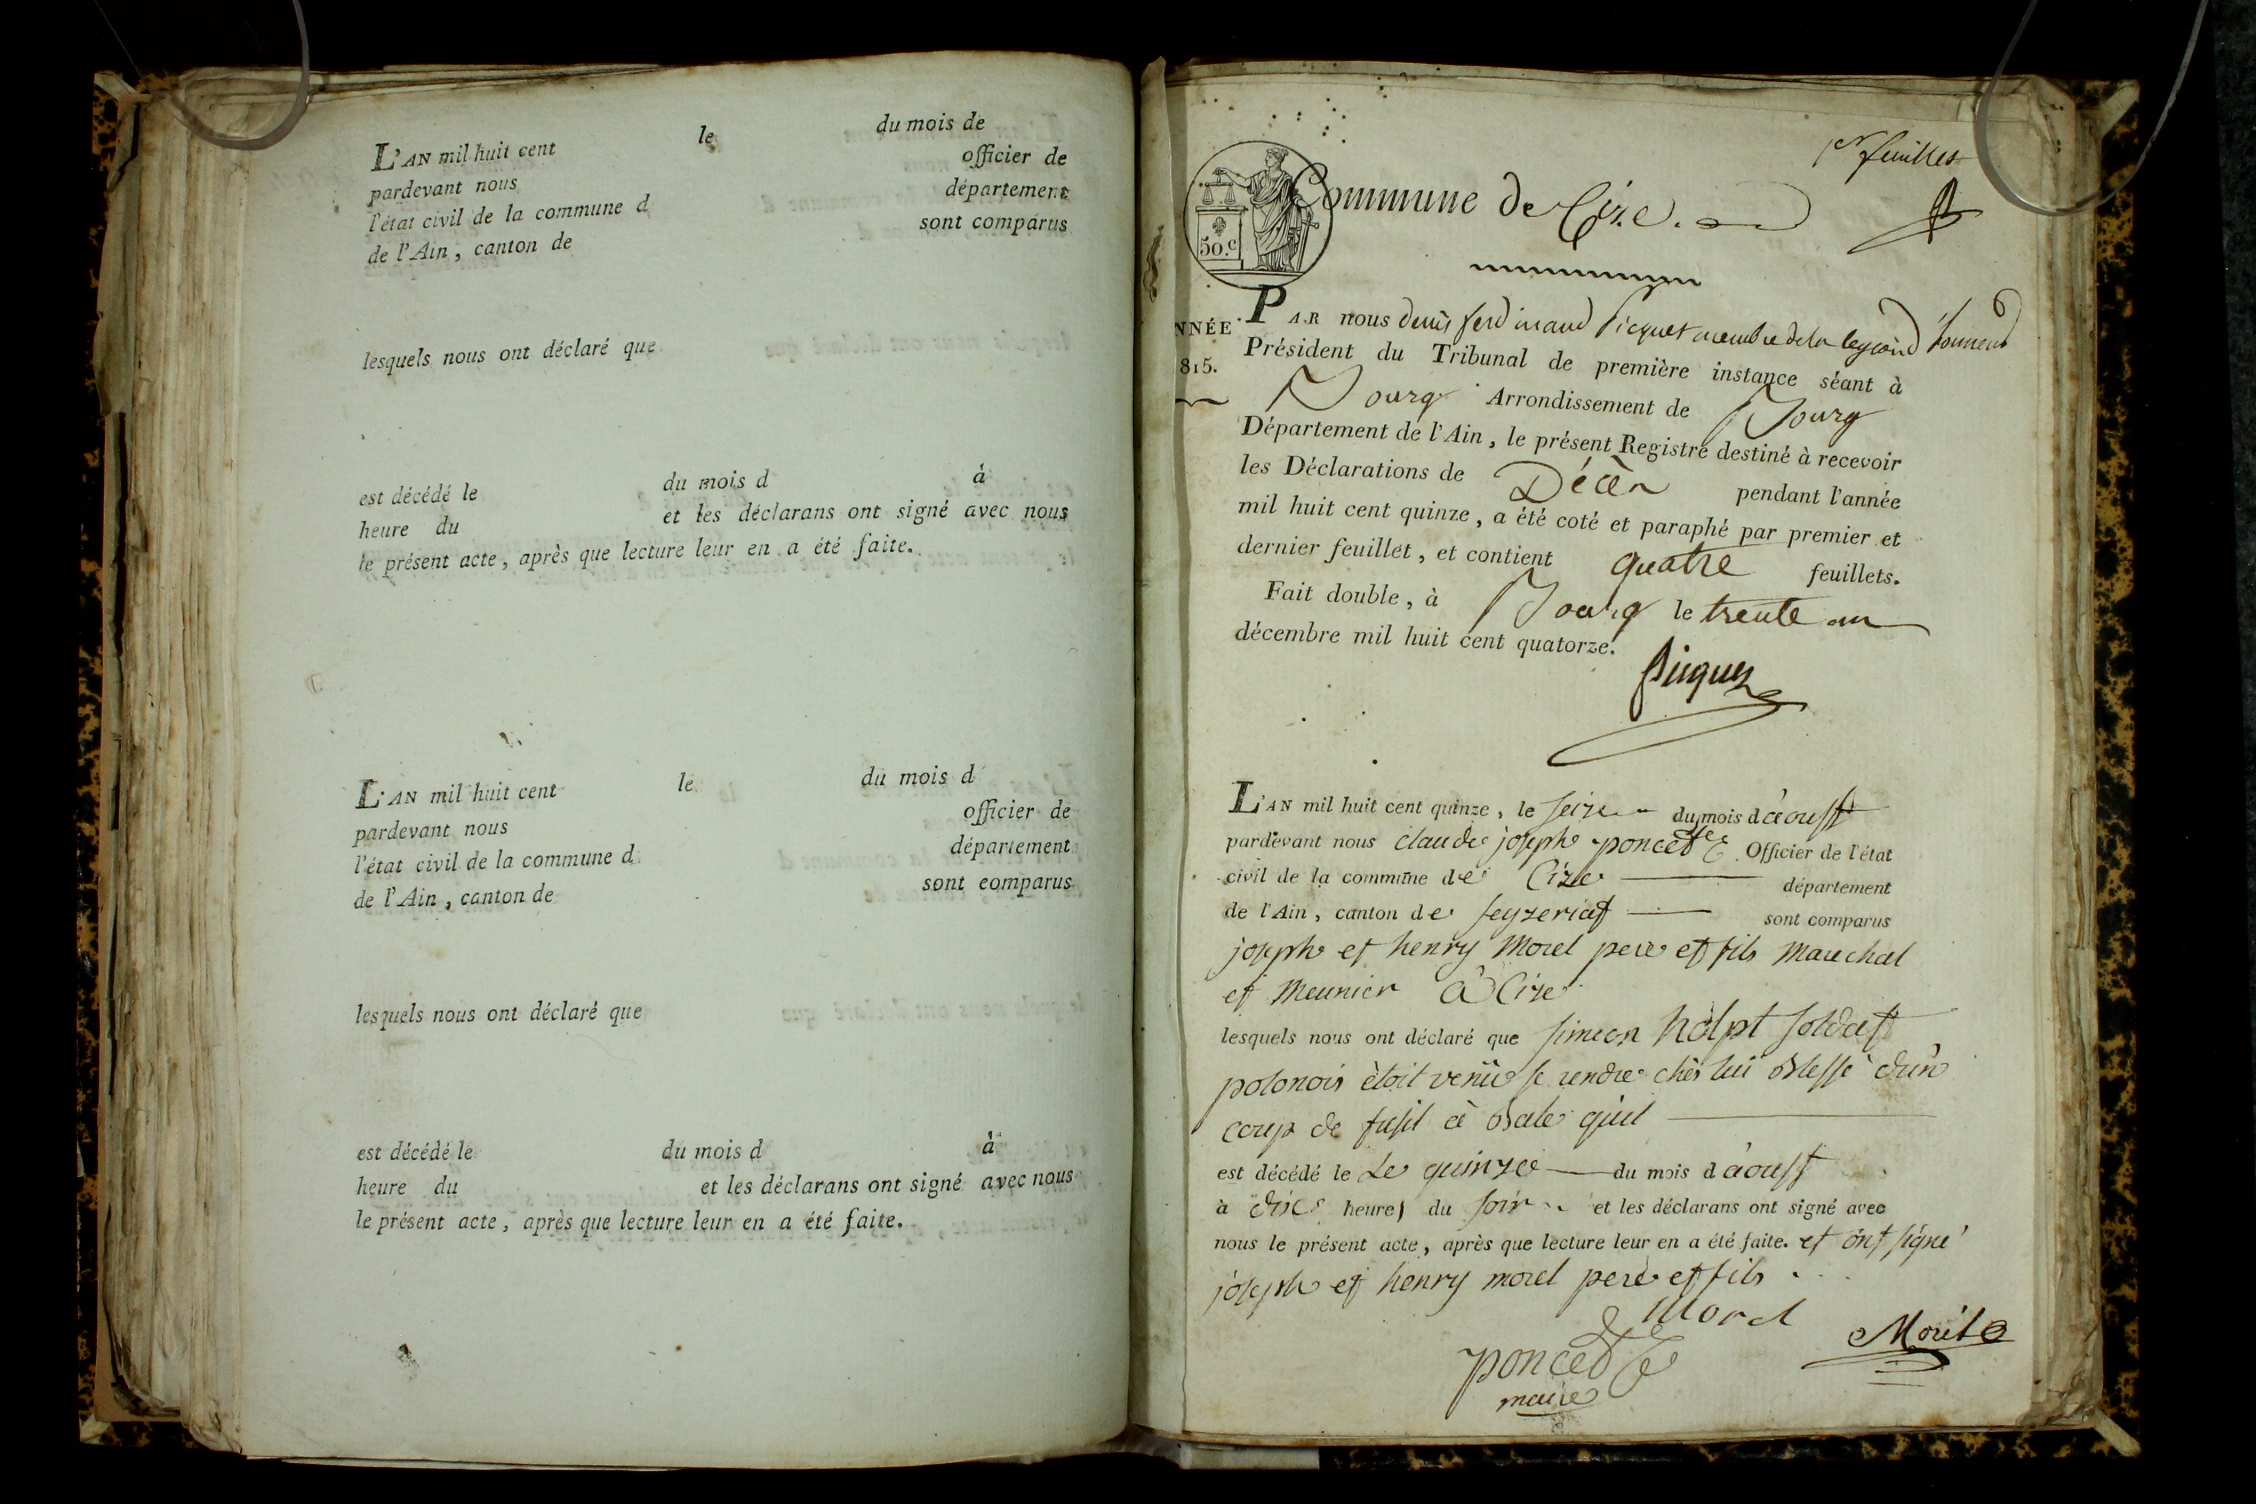 L'AN mil huit cent le du mois de
pardevant nous officier de
l'état civil de la commune d département
de l'Ain, canton de sont comparus
lesquels nous ont déclaré que
est décédé le du mois d à
heure du et les déclarans ont signé avec nous
le présent acte, après que lecture leur en a été faite.
L'AN mil huit cent le du mois d
pardevant nous officier de
l'état civil de la commune d département
de l'Ain, canton de sont comparus
lesquels nous ont déclaré que
est décédé le du mois d à
heure du et les déclarans ont signé avec nous
le présent acte, après que lecture leur en a été faite.
1er feuillet
Commune de Cize.
50.c
NNÉE
815.
PAR nous denis ferdinand Picquet membre de la legion d'honneur
Président du Tribunal de première instance séant à
Bourg Arrondissement de Bourg
Département de l'Ain, le présent Registre destiné à recevoir
les Déclarations de Décès pendant l'année
mil huit cent quinze, a été coté et paraphé par premier et
dernier feuillet, et contient quatre feuillets.
Fait double, à Bourg le trente un
décembre mil huit cent quatorze.
Picquet
L'AN mil huit cent quinze, le seize du mois d'aoust
pardevant nous claude joseph poncet Officier de l'état
civil de la commune de Cize département
de l'Ain, canton de seyzeriat sont comparus
joseph et henry Morel pere et fils Marechal
et Meunier à Cize
lesquels nous ont déclaré que simeon holpt soldat
polonois ètoit venü se rendre chès lui blessè d'un
coup de fusil à bale qu'il
est décédé le Le quinze du mois d'aoust
à dix heures du soir et les déclarans ont signé avec
nous le présent acte, après que lecture leur en a été faite. et ont signé
joseph et henry morel pere et fils
Morel
Morel
poncet
maire